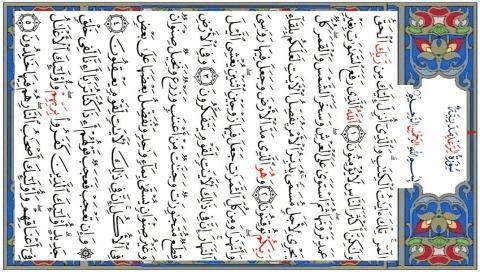 سُورَةُ الرَّعْدِ مَدَنِيَّة
بِسْمِ اللَّهِ الرَّحْمَٰنِ الرَّحِيمِ
الٓمٓر تِلْكَ ءَايَٰتُ ٱلْكِتَٰبِ وَٱلَّذِىٓ أُنزِلَ إِلَيْكَ مِن رَّبِّكَ ٱلْحَقُّ
وَلَٰكِنَّ أَكْثَرَ ٱلنَّاسِ لَا يُؤْمِنُونَ ١ ٱللَّهُ ٱلَّذِى رَفَعَ ٱلسَّمَٰوَٰتِ بِغَيْرِ
عَمَدٍ تَرَوْنَهَا ثُمَّ ٱسْتَوَىٰ عَلَى ٱلْعَرْشِ وَسَخَّرَ ٱلشَّمْسَ وَٱلْقَمَرَ كُلٌّ
يَجْرِى لِأَجَلٍ مُّسَمًّى يُدَبِّرُ ٱلْأَمْرَ يُفَصِّلُ ٱلْءَايَٰتِ لَعَلَّكُم بِلِقَآءِ
رَبِّكُمْ تُوقِنُونَ ٢ وَهُوَ ٱلَّذِى مَدَّ ٱلْأَرْضَ وَجَعَلَ فِيهَا رَوَٰسِىَ
وَأَنْهَٰرًا وَمِن كُلِّ ٱلثَّمَرَٰتِ جَعَلَ فِيهَا زَوْجَيْنِ ٱثْنَيْنِ يُغْشِى ٱلَّيْلَ
ٱلنَّهَارَ إِنَّ فِى ذَٰلِكَ لَءَايَٰتٍ لِّقَوْمٍ يَتَفَكَّرُونَ ٣ وَفِى ٱلْأَرْضِ
قِطَعٌ مُّتَجَٰوِرَٰتٌ وَجَنَّٰتٌ مِّنْ أَعْنَٰبٍ وَزَرْعٌ وَنَخِيلٌ صِنْوَانٌ
وَغَيْرُ صِنْوَانٍ يُسْقَىٰ بِمَآءٍ وَٰحِدٍ وَنُفَضِّلُ بَعْضَهَا عَلَىٰ بَعْضٍ
فِى ٱلْأُكُلِ إِنَّ فِى ذَٰلِكَ لَءَايَٰتٍ لِّقَوْمٍ يَعْقِلُونَ ٤
وَإِن تَعْجَبْ فَعَجَبٌ قَوْلُهُمْ أَءِذَا كُنَّا تُرَٰبًا أَءِنَّا لَفِى خَلْقٍ
جَدِيدٍ أُو۟لَٰٓئِكَ ٱلَّذِينَ كَفَرُوا۟ بِرَبِّهِمْ وَأُو۟لَٰٓئِكَ ٱلْأَغْلَٰلُ
فِىٓ أَعْنَاقِهِمْ وَأُو۟لَٰٓئِكَ أَصْحَٰبُ ٱلنَّارِ هُمْ فِيهَا خَٰلِدُونَ ٥